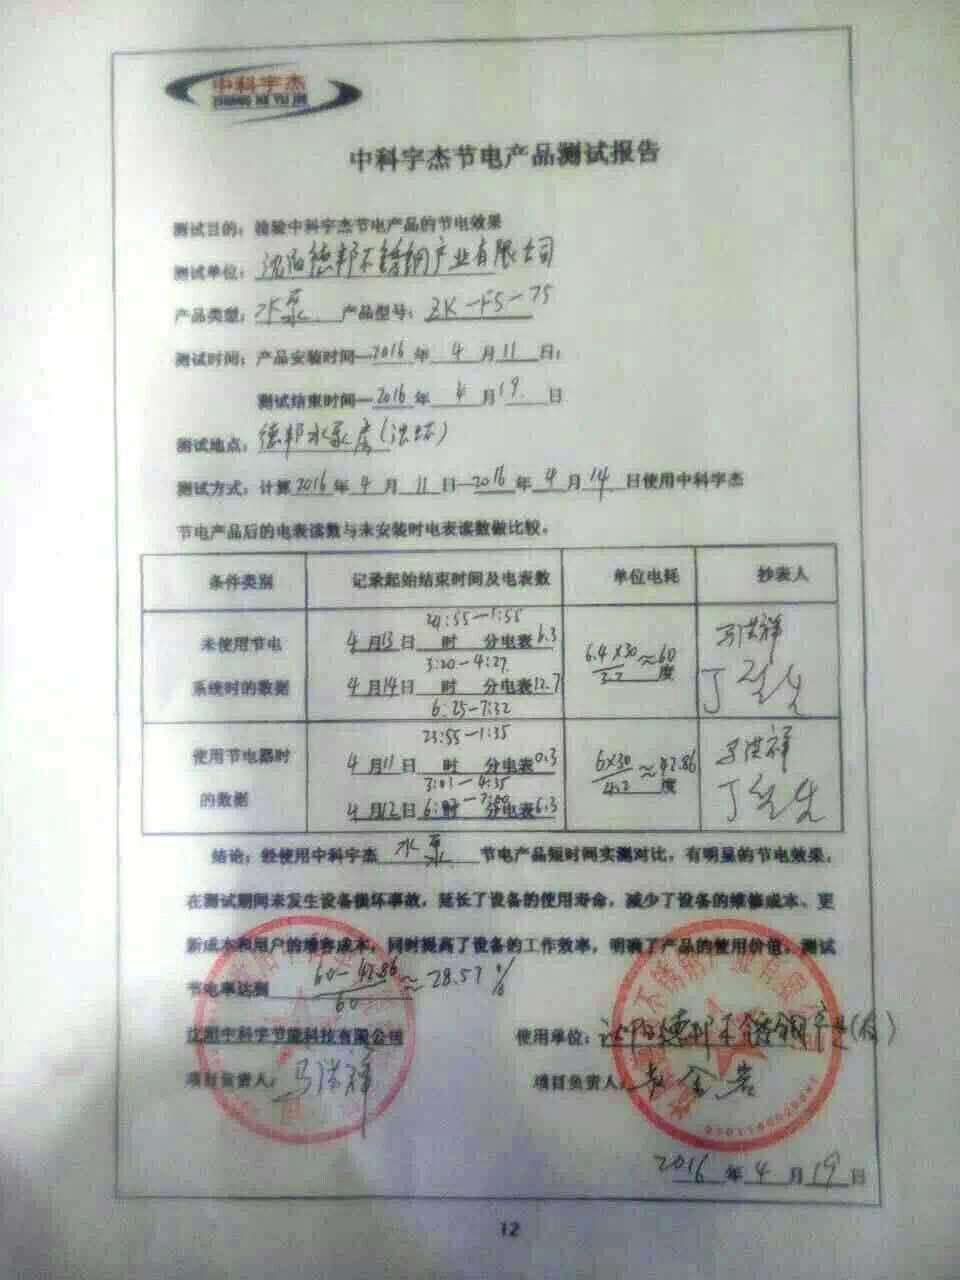 中科宇杰
ZHONG KE YU JIE
中科宇杰节电产品测试报告
测试目的：检验中科宇杰节电产品的节电效果
测试单位：沈阳德邦不锈钢产业有限公司
产品类型：水泵 产品型号：ZK-FS-75
测试时间：产品安装时间—2016年4月11日；
测试结束时间—2016年4月19日
测试地点：德邦水泵房
测试方式：计算2016年4月11日—2016年4月14日使用中科宇杰
节电产品后的电表读数与未安装时电表读数做比较。
条件类别 记录起始结束时间及电表数 单位电耗 抄表人
未使用节电
系统时的数据
21:55—1:55
4月13日 时 分电表6.3
3:20—4:27
4月14日 时 分电表12.7
6:25—7:32
6.4×30/3.2≈60度
马洪祥
使用节电器时
的数据
23:55—1:35
4月11日 时 分电表0.3
3:01—4:35
4月12日 时 分电表6.3
6×30/4.2≈42.86度
马洪祥
结论：经使用中科宇杰水泵节电产品短时间实测对比，有明显的节电效果。
在测试期间未发生设备损坏事故，延长了设备的使用寿命，减少了设备的维修成本、更
新成本和用户的维客成本，同时提高了设备的工作效率，明确了产品的使用价值。测试
节电率达测 60-42.86/60≈28.57%
沈阳中科宇节能科技有限公司 使用单位：沈阳德邦不锈钢产业
项目负责人：马洪祥 项目负责人：
2016年4月19日
12